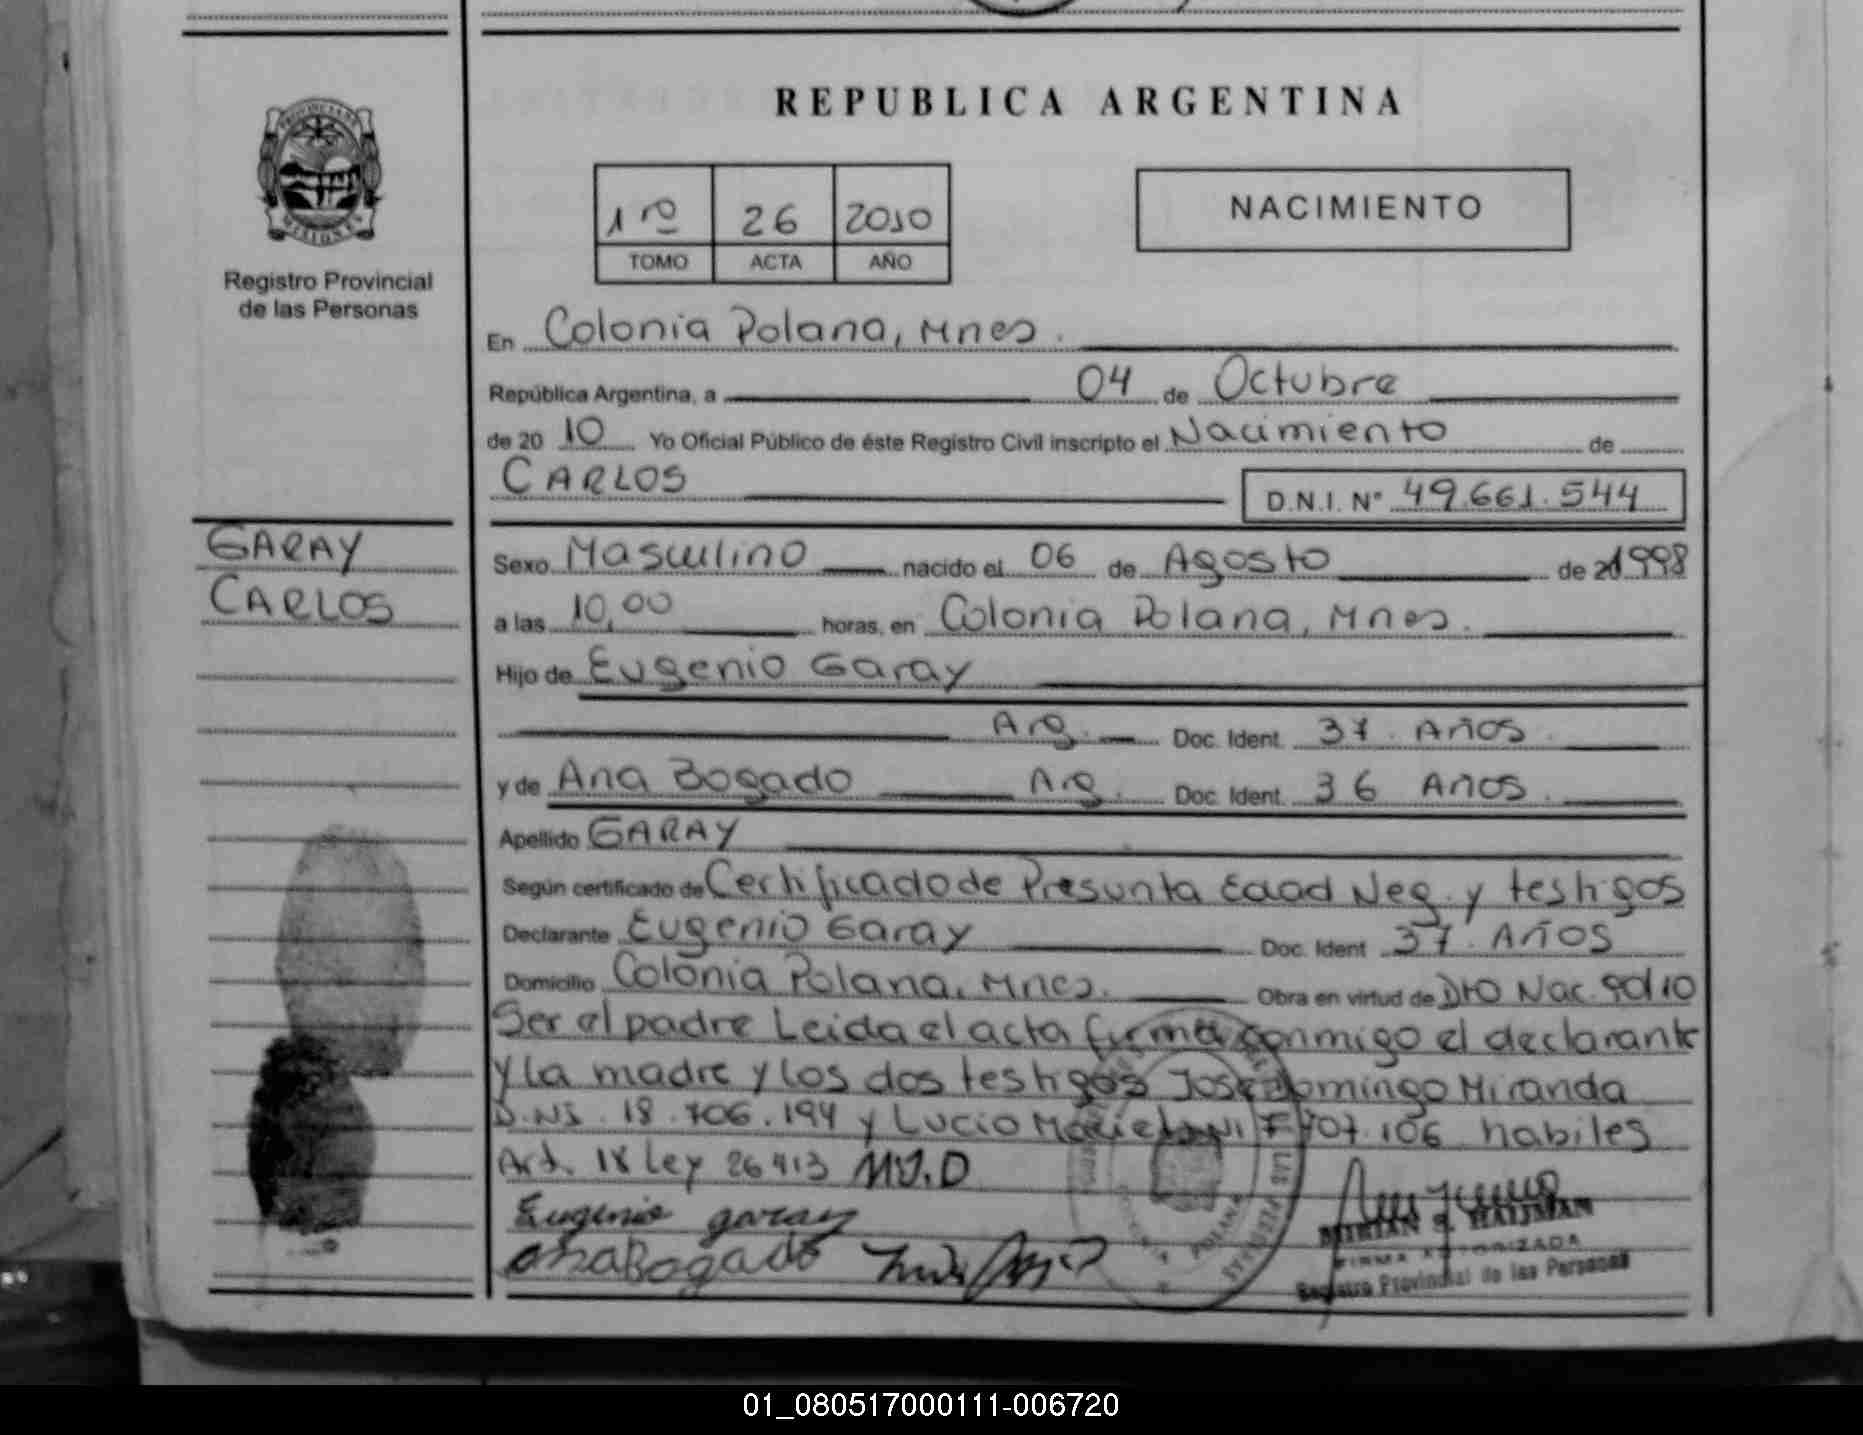 REPUBLICA ARGENTINA
1ro 26 2010
TOMO ACTA AÑO
NACIMIENTO
PROVINCIA DE
MISIONES
Registro Provincial
de las Personas
En Colonia Polana, Mnes.
República Argentina, a 04 de Octubre
de 20 10 Yo Oficial Público de éste Registro Civil inscripto el Nacimiento de
CARLOS
D.N.I. Nº 49.661.544
GARAY
CARLOS
Sexo Masculino nacido el 06 de Agosto de 1998
a las 10,00 horas, en Colonia Polana, Mnes.
Hijo de Eugenio Garay
Arg. Doc. Ident. 37. Años
y de Ana Bogado Arg. Doc. Ident. 36 Años.
Apellido GARAY
Según certificado de Certificado de Presunta Edad Neg. y testigos
Declarante Eugenio Garay Doc. Ident 37. Años
Domicilio Colonia Polana, Mnes. Obra en virtud de Dto Nac. 90/10
Ser el padre Leida el acta firma conmigo el declarante
y la madre y los dos testigos Jose Domingo Miranda
D.NI. 18.706.194 y Lucio habiles
Art. Ley 26413 MJ.D
Eugenio garay
anaBogado
FIRMA AUTORIZADA
Registro Provincial de las Personas
POLANA
LAS PERSONAS
01_080517000111-006720